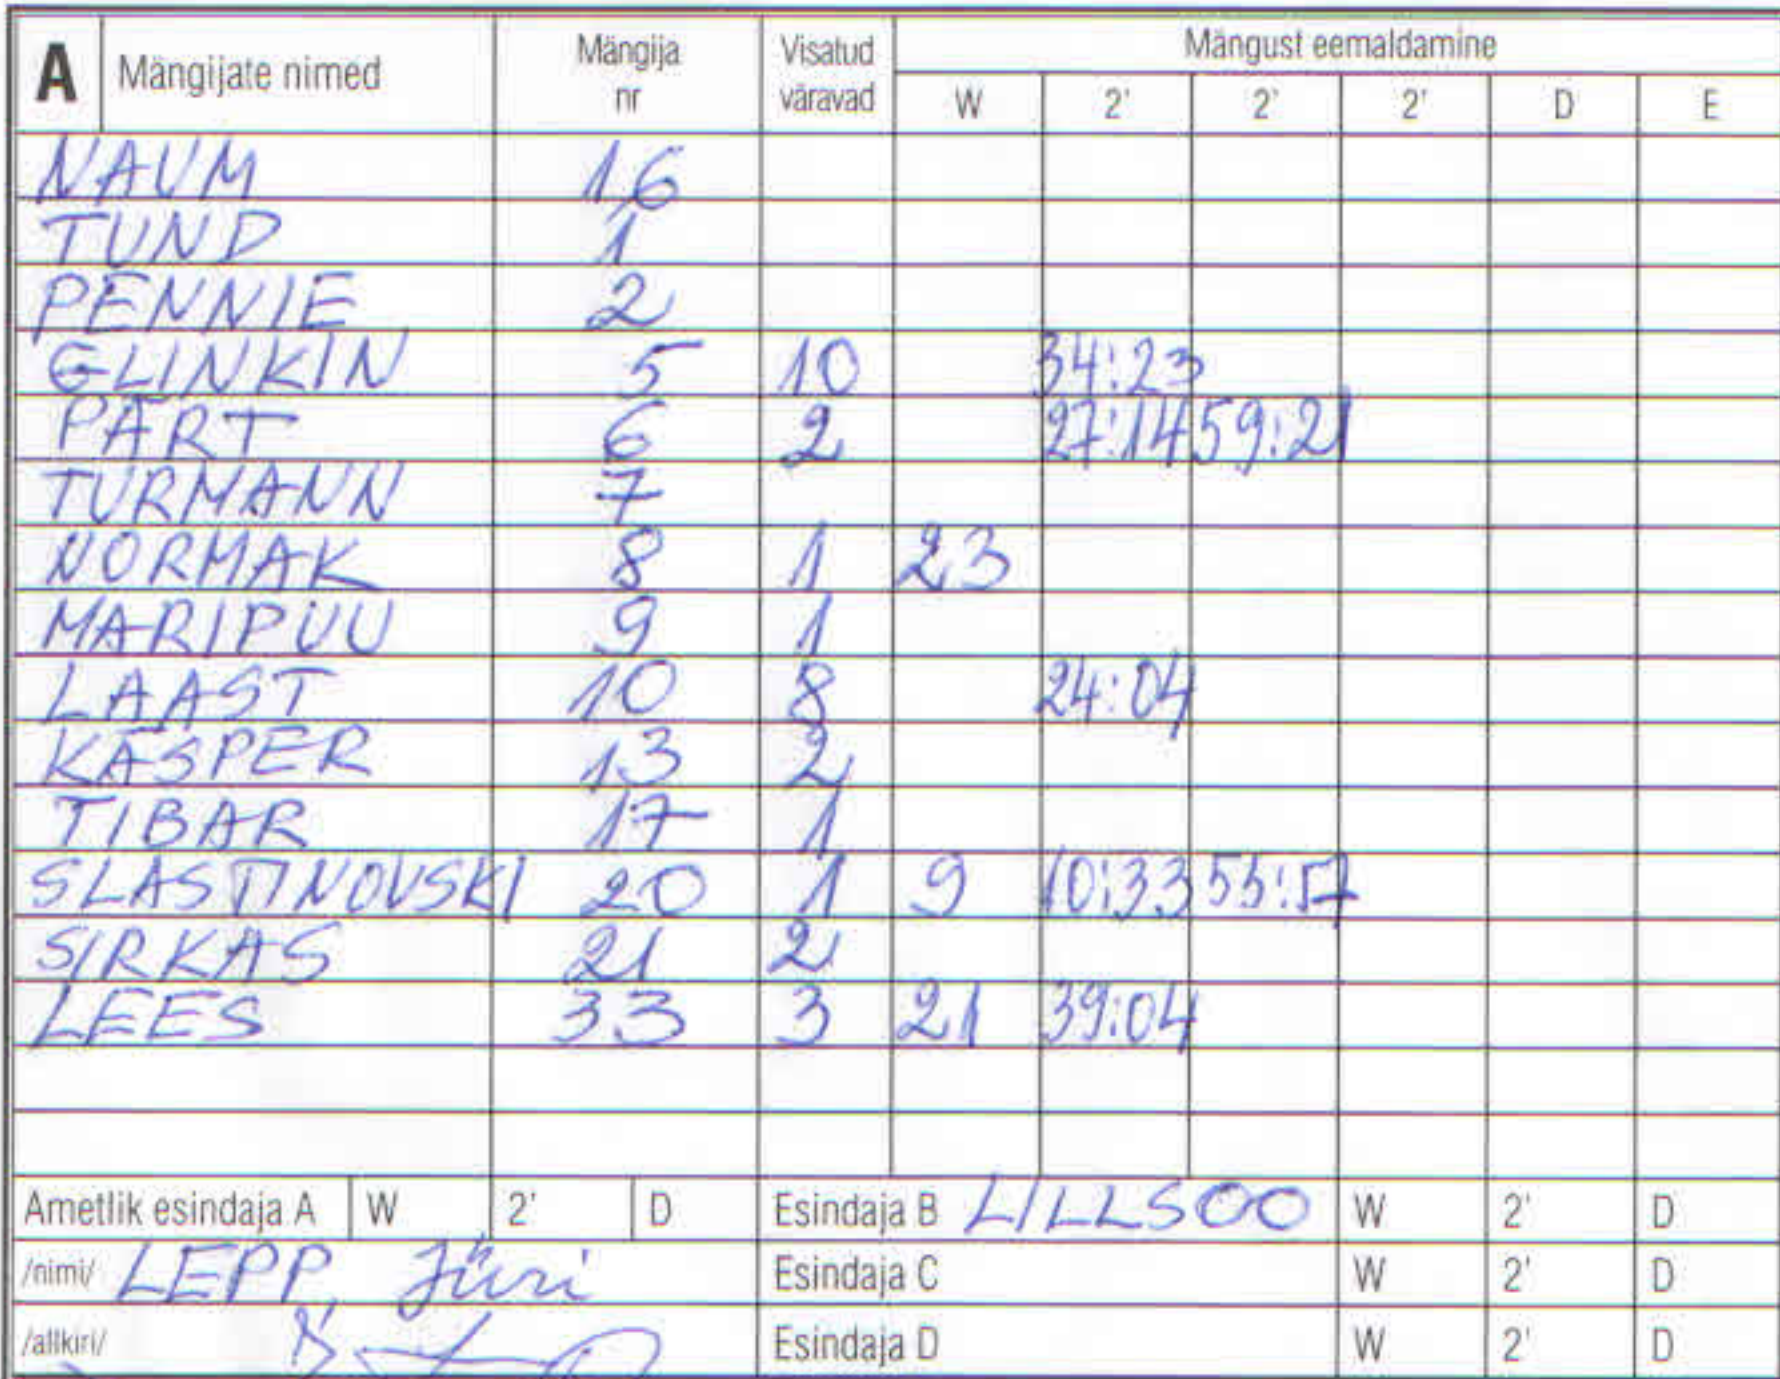 A Mängijate nimed Mängija nr Visatud väravad Mängust eemaldamine
W 2' 2' 2' D E
NAUM 16
TUND 1
PENNIE 2
GLINKIN 5 10 34:23
PÄRT 6 2 27:14 59:21
TURMANN 7
NORMAK 8 1 23
MARIPUU 9 1
LAAST 10 8 24:04
KASPER 13 2
TIBAR 17 1
SLASTINOVSKI 20 1 9 10:33 55:57
SIRKAS 21 2
LEES 33 3 21 39:04
Ametlik esindaja A W 2' D Esindaja B LILLSOO W 2' D
/nimi/ LEPP, Jüri Esindaja C W 2' D
/allkiri/ Esindaja D W 2' D